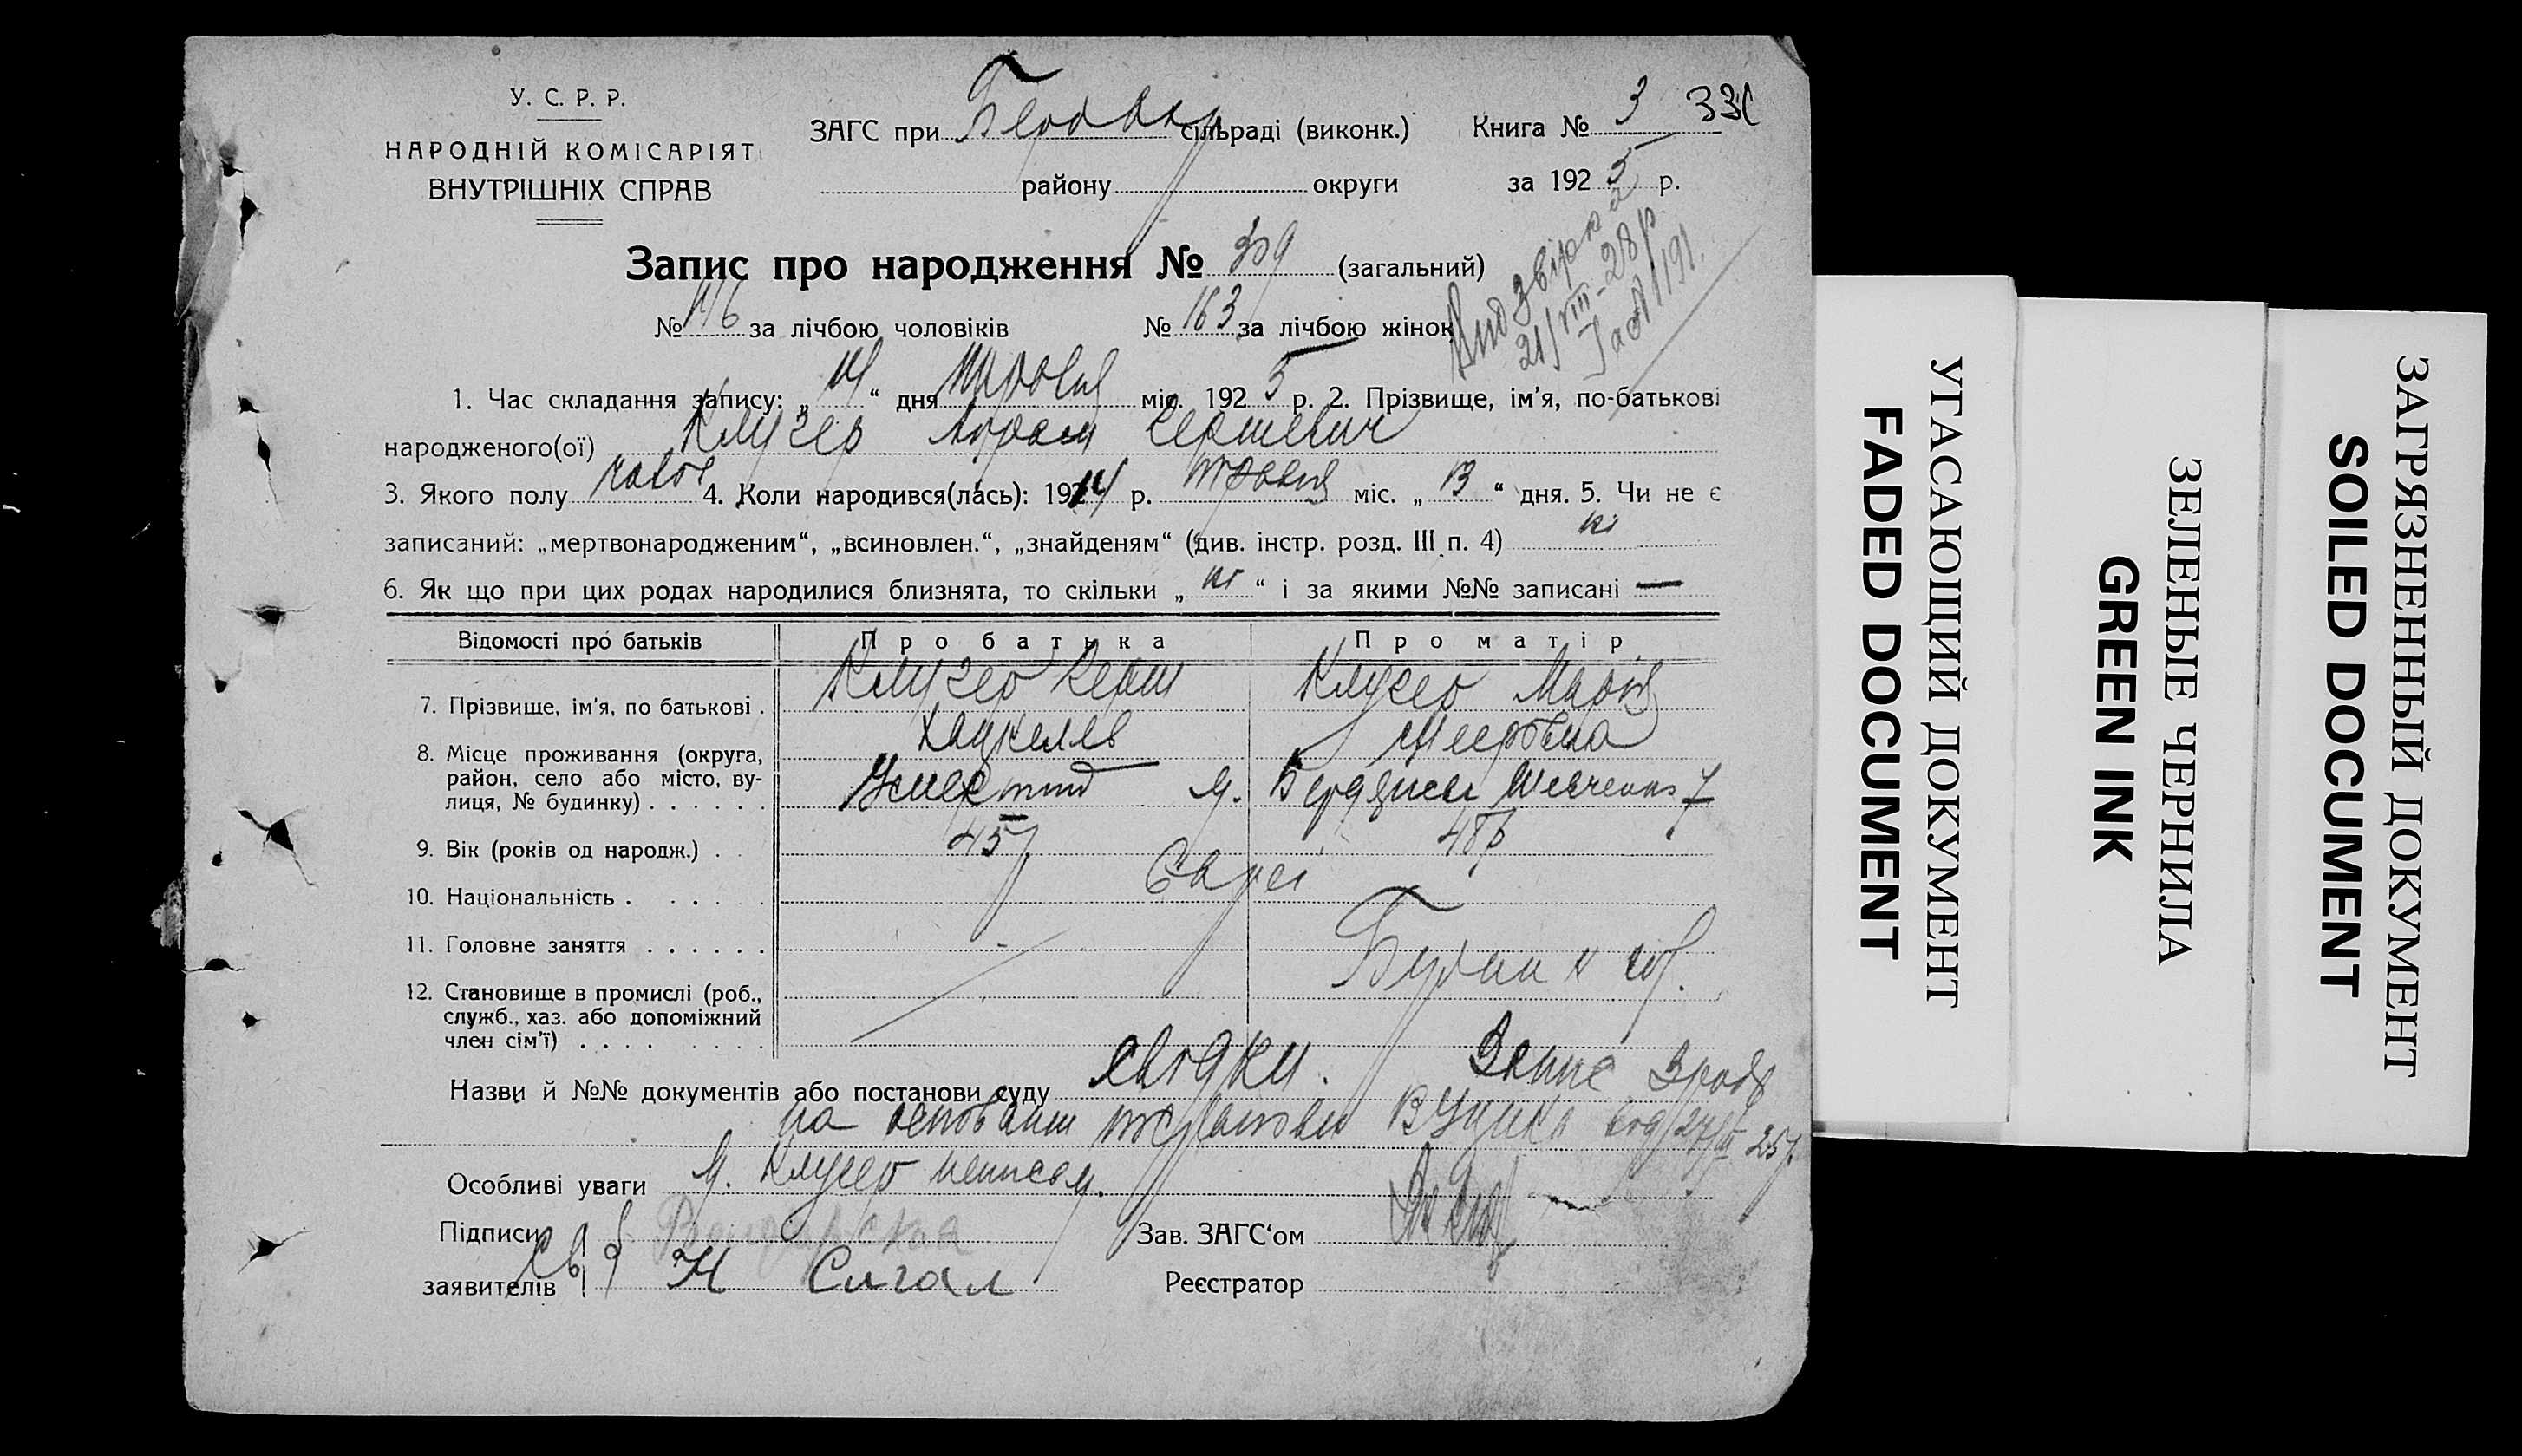 У. С. Р. Р.
НАРОДНІЙ КОМІСАРІЯТ
ВНУТРІШНІХ СПРАВ
ЗАГС при сільраді (виконк.) Книга № 3
району округи за 1925 р.
Запис про народження № 309 (загальний)
№ 146 за лічбою чоловіків № 163 за лічбою жінок
1. Час складання запису: „ “ дня міс. 1925 р. 2. Прізвище, ім'я, по-батькові
народженого(ої) Клугер Абрам Гершевич
3. Якого полу чолов 4. Коли народився(лась): 1914 р. травня міс. „ 13 “ дня. 5. Чи не є
записаний: „мертвонародженим“, „всиновлен.“, „знайденям“ (див. інстр. розд. III п. 4) ні
6. Як що при цих родах народилися близнята, то скільки „ ні “ і за якими №№ записані —
Відомості про батьків Про батька Про матір
7. Прізвище, ім'я, по батькові . Клугер Герш Клугер Марія
Хацкелев Мееровна
8. Місце проживання (округа,
район, село або місто, ву-
лиця, № будинку) . . . . . . м. Бердичев Шевченко 7
9. Вік (років од народж.) . . 45 48
10. Національність . . . . . Євреї
11. Головне заняття . . . . . .
12. Становище в промислі (роб.,
служб., хаз. або допоміжний
член сім'ї) . . . . . . . . .
Назви й №№ документів або постанови суду свідки. Запис
на основании постанови ВУЦИКа від 27
Особливі уваги М. Клугер неписьм.
Підписи
заявителів Н Сигал
Зав. ЗАГС'ом
Реєстратор
УГАСАЮЩИЙ ДОКУМЕНТ
FADED DOCUMENT
ЗЕЛЕНЫЕ ЧЕРНИЛА
GREEN INK
ЗАГРЯЗНЕННЫЙ ДОКУМЕНТ
SOILED DOCUMENT